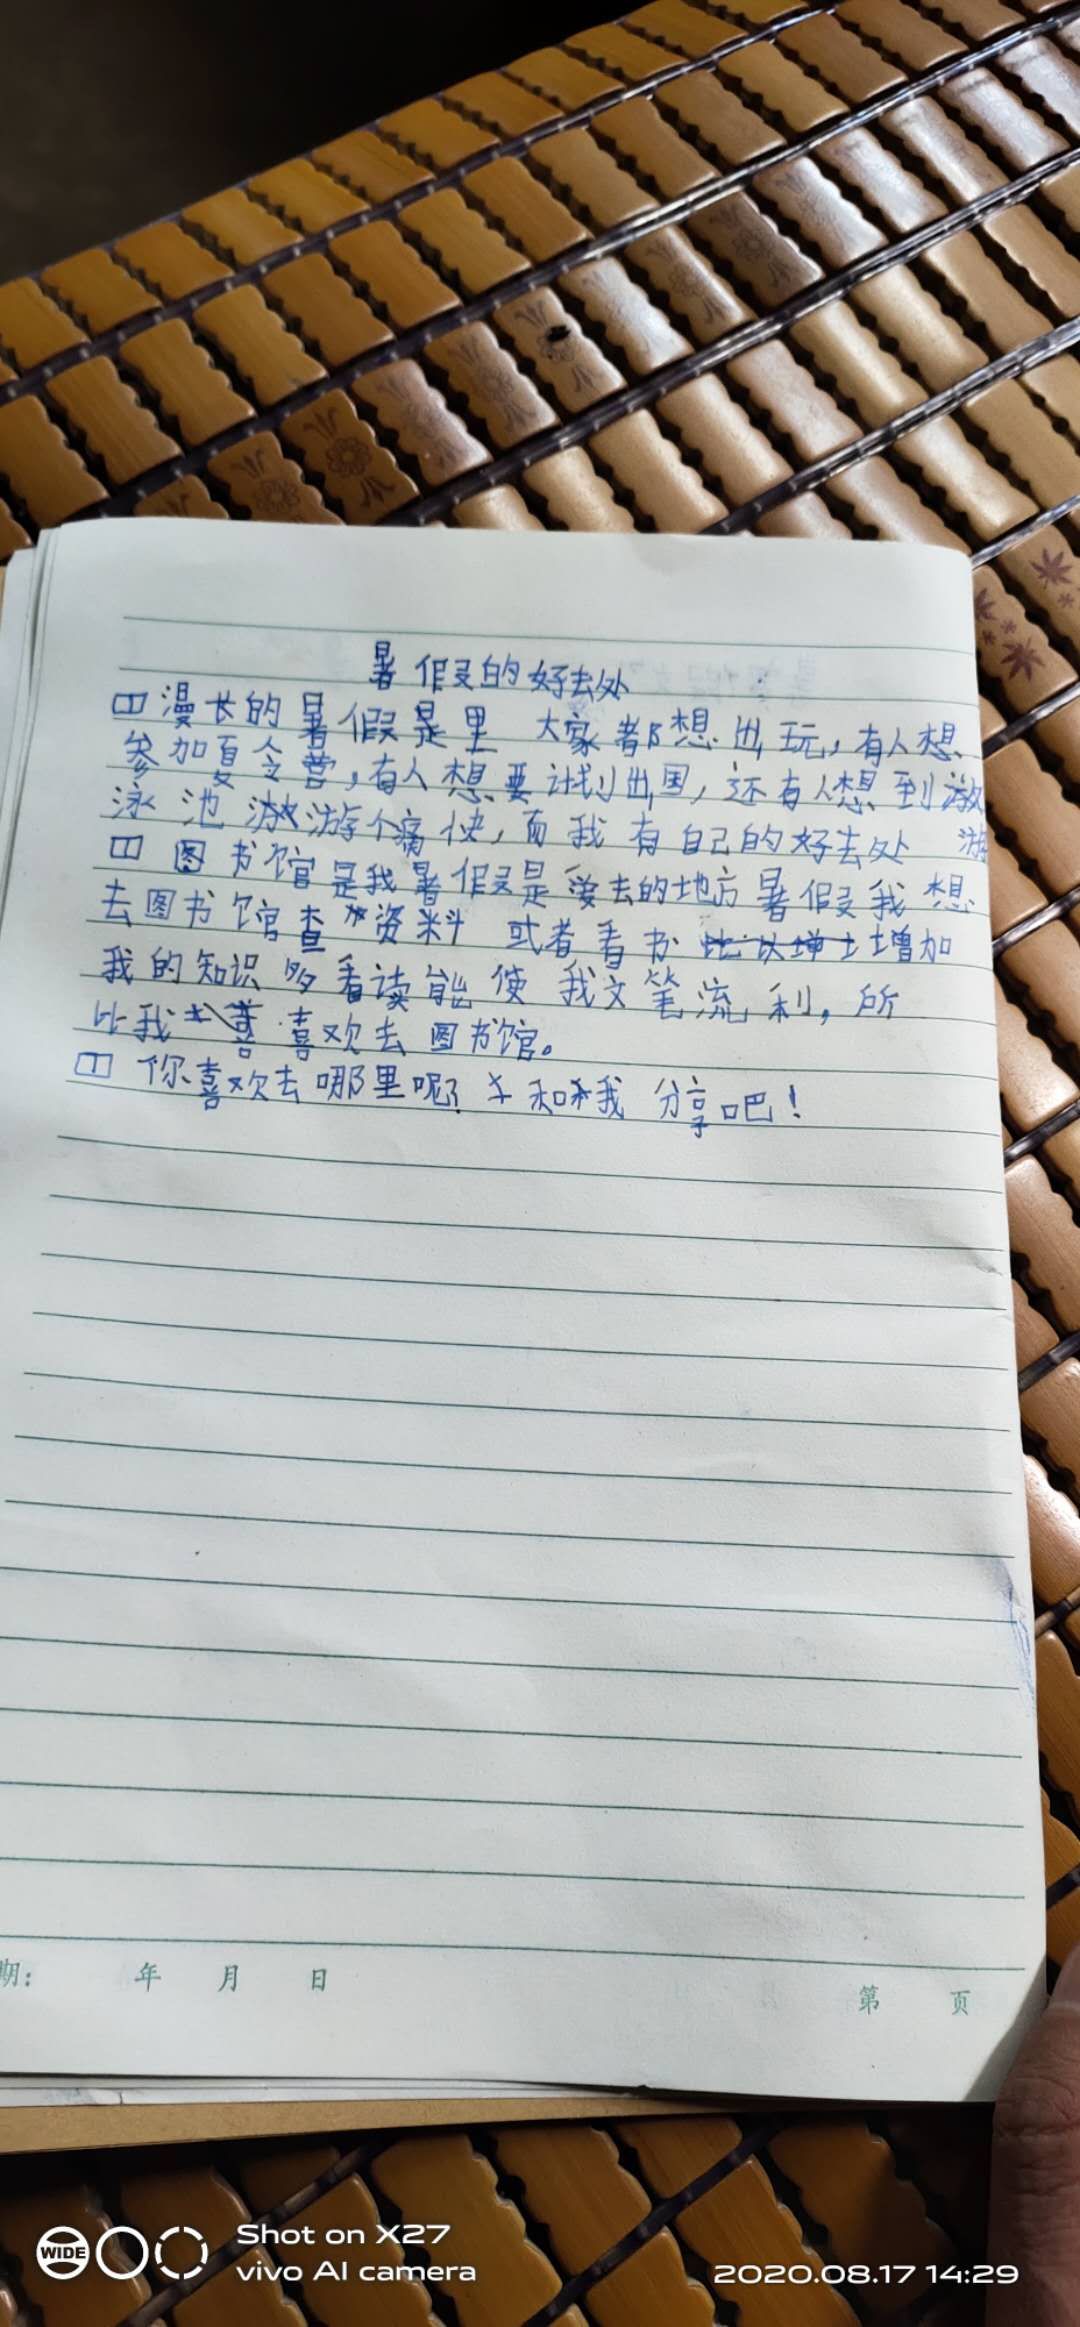 暑假的好去处
漫长的暑假是里 大家都想出玩，有人想
参加夏令营，有人想要计划出国，还有人想到游
泳池游游个痛快，而我有自己的好去处 游
图书馆是我暑假是爱去的地方暑假我想
去图书馆查资料 或者看书 增加
我的知识多看读能使我文笔流利，所
比我喜欢去图书馆。
你喜欢去哪里呢？和我分享吧！
期： 年 月 日
第 页
WIDE
Shot on X27
vivo AI camera
2020.08.17 14:29